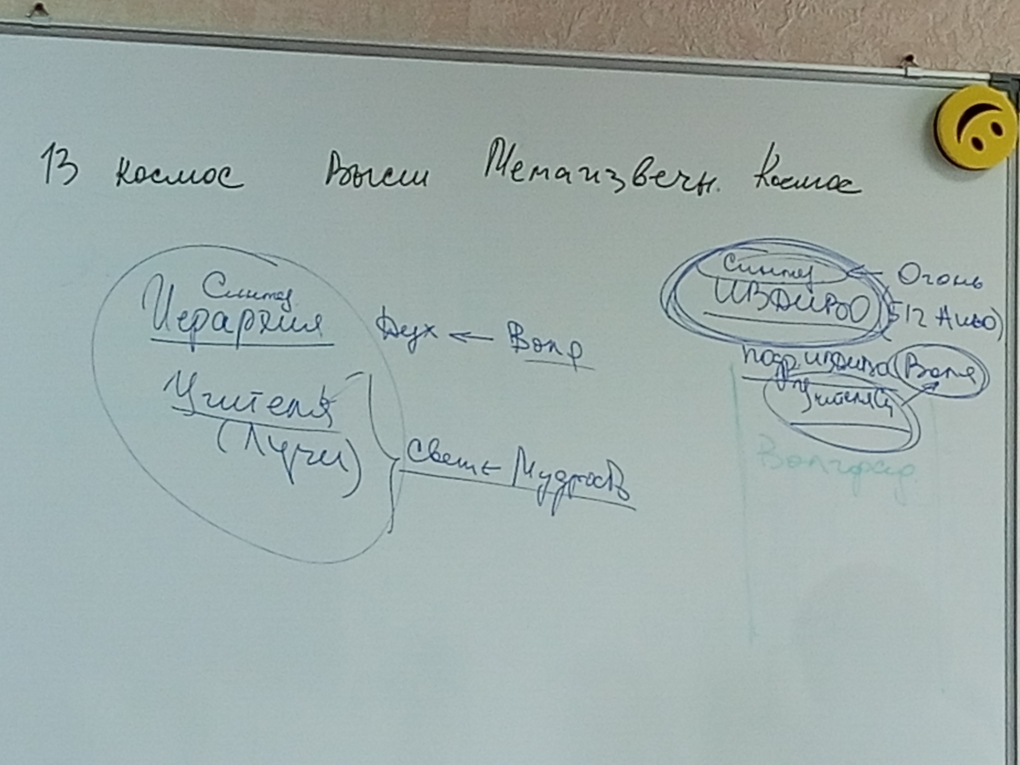 13 космос Высш Метаизвечн. Космос
Синтез
Иерархия
Дух ← Воля
Учителя
(Лучи)
Свет ← Мудрость
Синтез ← Огонь
ИВДИВО (512 АИВО)
подр. ИВДИВО (Воля
Учителя
Волгоград